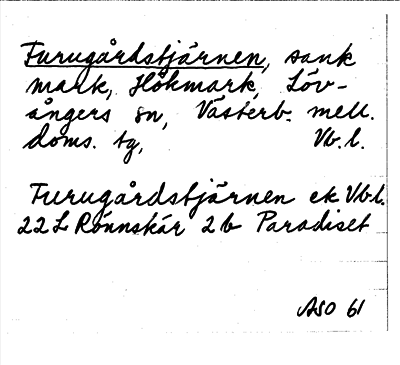 Furugårdstjärnen, sank
mark, Hökmark, Löv-
ångers sn, Västerb. mell.
doms. tg, Vb.l.
Furugårdstjärnen ek Vb.l.
22L Rönnskär 2b Paradiset
ASO 61